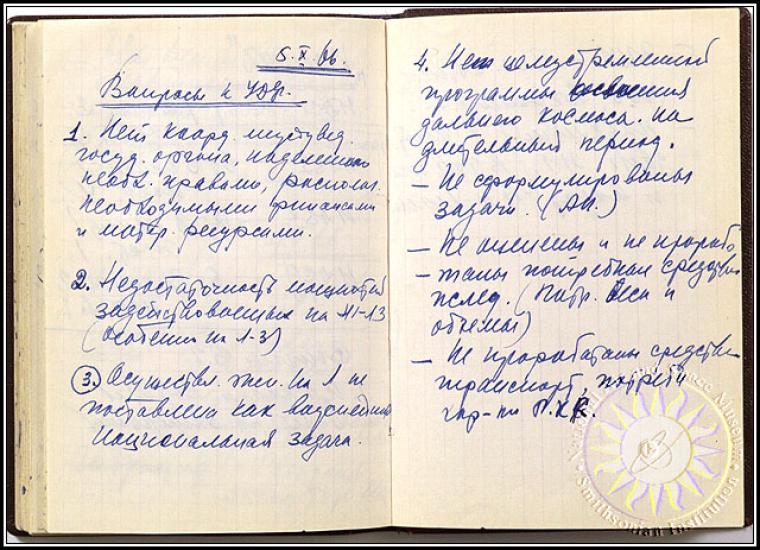 5.X.66.
Вопросы к УДФ.
1. Нет коорд. муствед
госуд. органа, наделенного
необх. правами, располаг.
необходимыми финансами
и матер. ресурсами.
2. Недостаточность мощностей
задействованных на Н1-Л3
(особенно на Л-3)
3. Осуществл. эксп. на Л не
поставлена как важнейшая
национальная задача.
4. Нет целеустремленной
программы освоения
дальнего космоса. на
длительный период.
— Не сформулированы
задачи. (АН.)
— Не и не прорабо
— таны потребные средства
послед. (Потр. веса и
объемы)
— Не проработаны средства
транспорт,
хар-ки
National Air and Space Museum
Smithsonian Institution